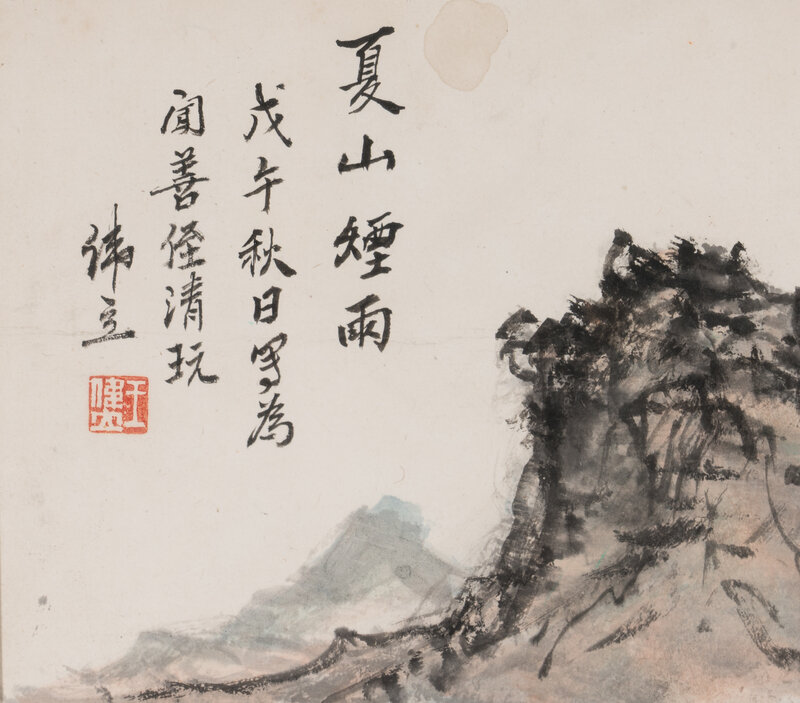 夏山煙雨
戊午秋日写為
聞善侄清玩
立